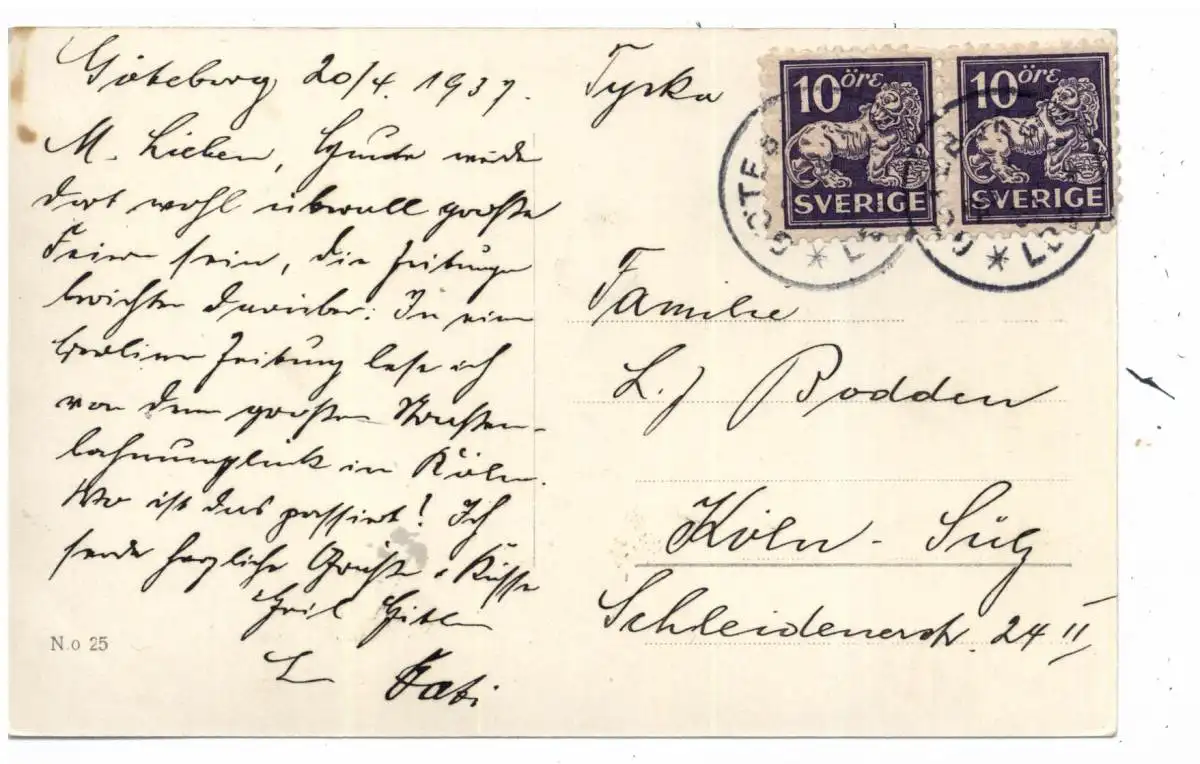 Göteborg 20/4. 1937.
M. Lieben, Heute wird
dort wohl überall große
Feier sein, die Zeitungen
berichten darüber. In einer
Berliner Zeitung lese ich
von dem großen Straßen-
bahnunglück in Köln.
Wo ist das passiert! Ich
sende herzliche Grüße u. Küsse
Heil Hitler
Tyska
10 öre
SVERIGE
10 öre
SVERIGE
GÖTEB
Familie
L. J Bodden
Köln - Sülz
Schleidenerstr. 24 II
N.o 25